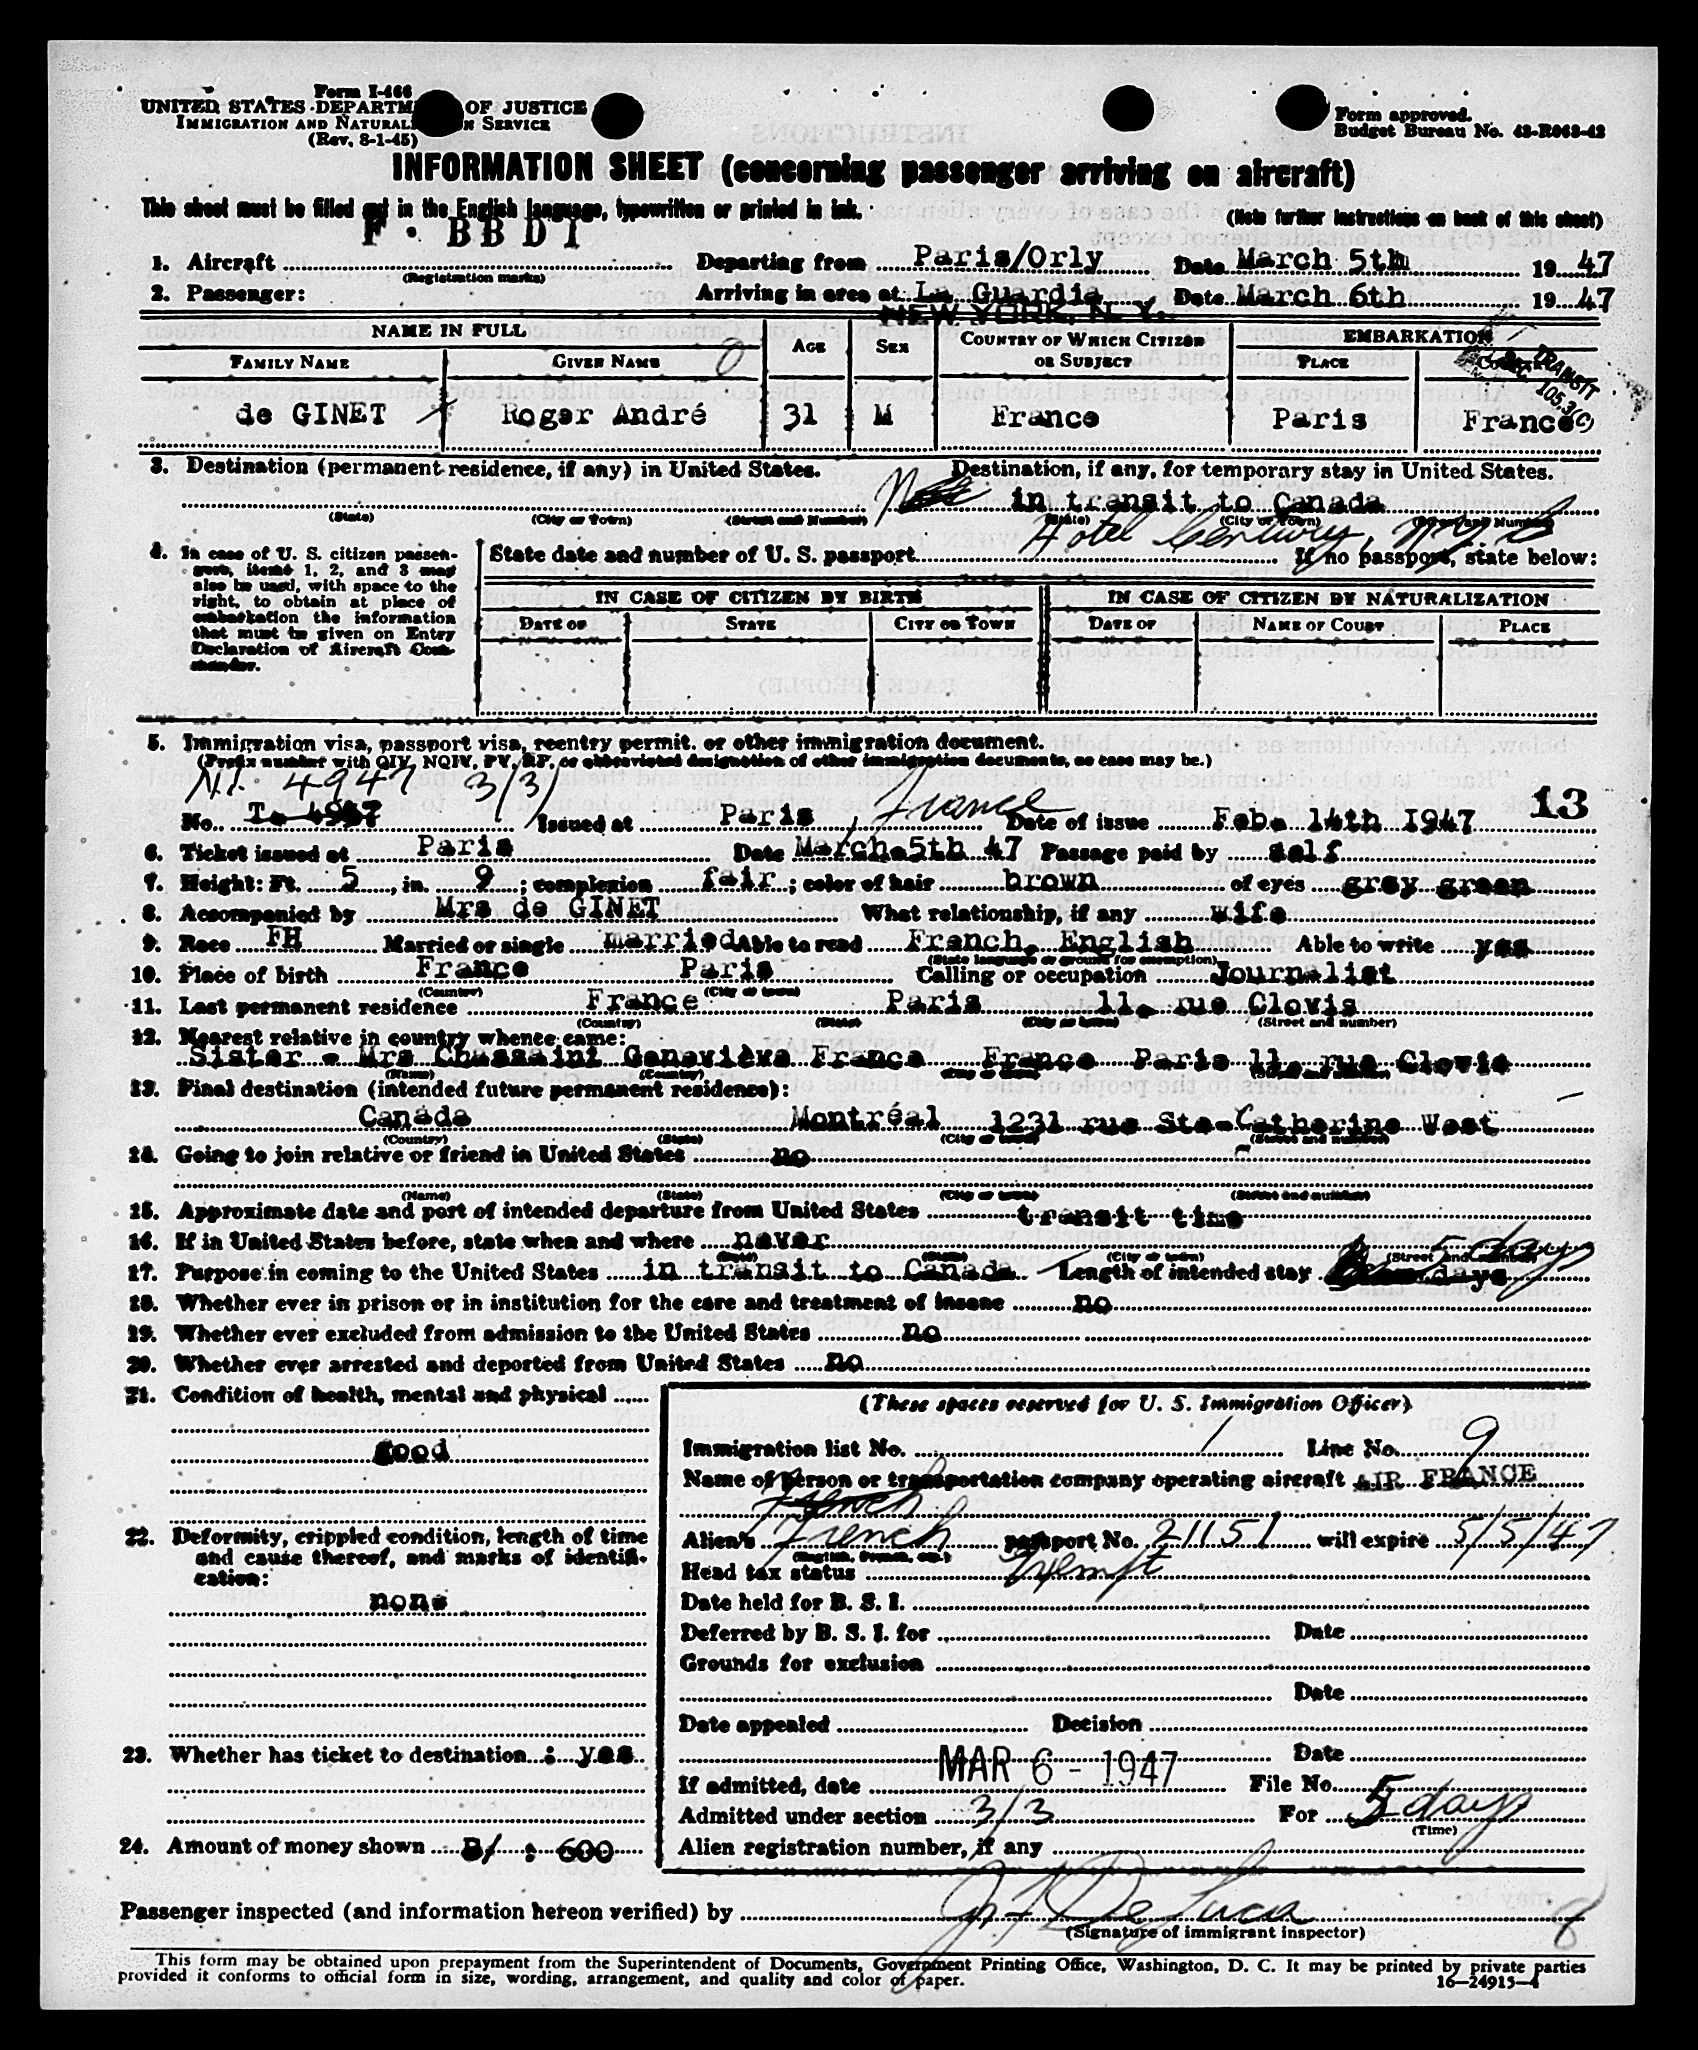 Form I-466
UNITED STATES DEPARTM OF JUSTICE
IMMIGRATION AND NATURAL N SERVICE
(Rev. 8-1-45)
Form approved.
Budget Bureau No. 43-R063-42
INFORMATION SHEET (concerning passenger arriving on aircraft)
This sheet must be filled out in the English language, typewritten or printed in ink. (Note further instructions on back of this sheet)
F · BBDI
1. Aircraft (Registration marks) Departing from Paris/Orly Date March 5th 1947
2. Passenger: Arriving in area at La Guardia Date March 6th 1947
NEW YORK, N. Y.
NAME IN FULL AGE SEX COUNTRY OF WHICH CITIZEN OR SUBJECT EMBARKATION
FAMILY NAME GIVEN NAME PLACE
TRANSIT
105.3(C)
de GINET Roger André 31 M France Paris France
3. Destination (permanent residence, if any) in United States. Destination, if any, for temporary stay in United States.
in transit to Canada
(State) (City or Town) (Street and Number) (State) (City or Town) (Street and Number)
Hotel Century, N.Y.C
4. In case of U. S. citizen passengers, items 1, 2, and 3 may also be used, with space to the right, to obtain at place of embarkation the information that must be given on Entry Declaration of Aircraft Commander.
State date and number of U. S. passport If no passport, state below:
IN CASE OF CITIZEN BY BIRTH IN CASE OF CITIZEN BY NATURALIZATION
DATE OF STATE CITY OR TOWN DATE OF NAME OF COURT PLACE
5. Immigration visa, passport visa, reentry permit, or other immigration document.
(Prefix number with QIV, NQIV, PV, RP, or abbreviated designation of other immigration documents, as case may be.)
4947 3/3/ France 13
No. T. 4947 Issued at Paris Date of issue Feb. 14th 1947
6. Ticket issued at Paris Date March 5th 47 Passage paid by self
7. Height: Ft. 5, in. 9; complexion fair; color of hair brown of eyes grey green
8. Accompanied by Mrs de GINET What relationship, if any wife
9. Race FH Married or single married Able to read French, English Able to write yes
(State language or ground for exemption)
10. Place of birth France Paris Calling or occupation Journalist
(Country) (City or town)
11. Last permanent residence France Paris 11, rue Clovis
(Country) (State) (City or town) (Street and number)
12. Nearest relative in country whence came:
Sister - Mrs Chassaint Geneviève France France Paris 11, rue Clovis
(Name) (Country) (City or town) (Street and number)
13. Final destination (intended future permanent residence):
Canada Montréal 1231 rue Ste-Catherine West
(Country) (State) (City or town) (Street and number)
14. Going to join relative or friend in United States no
(Name) (State) (City or town) (Street and number)
15. Approximate date and port of intended departure from United States transit time
16. If in United States before, state when and where never
(Date) (State) (City or town) (Street and number)
5 days
17. Purpose in coming to the United States in transit to Canada Length of intended stay days
18. Whether ever in prison or in institution for the care and treatment of insane no
19. Whether ever excluded from admission to the United States no
20. Whether ever arrested and deported from United States no
21. Condition of health, mental and physical
good
22. Deformity, crippled condition, length of time and cause thereof, and marks of identification:
none
23. Whether has ticket to destination : yes
24. Amount of money shown : 600
(These spaces reserved for U. S. Immigration Officer)
Immigration list No. 1 Line No. 9
Name of person or transportation company operating aircraft AIR FRANCE
French
Alien's French passport No. 21151 will expire 5/5/47
(English, French, etc.)
Head tax status Exempt
Date held for B. S. I.
Deferred by B. S. I. for Date
Grounds for exclusion
Date
Date appealed Decision
Date
If admitted, date MAR 6 - 1947 File No.
Admitted under section 3/3 For 5 days
(Time)
Alien registration number, if any
Passenger inspected (and information hereon verified) by De Luca
(Signature of immigrant inspector)
8
This form may be obtained upon prepayment from the Superintendent of Documents, Government Printing Office, Washington, D. C. It may be printed by private parties
provided it conforms to official form in size, wording, arrangement, and quality and color of paper. 16—24915-4